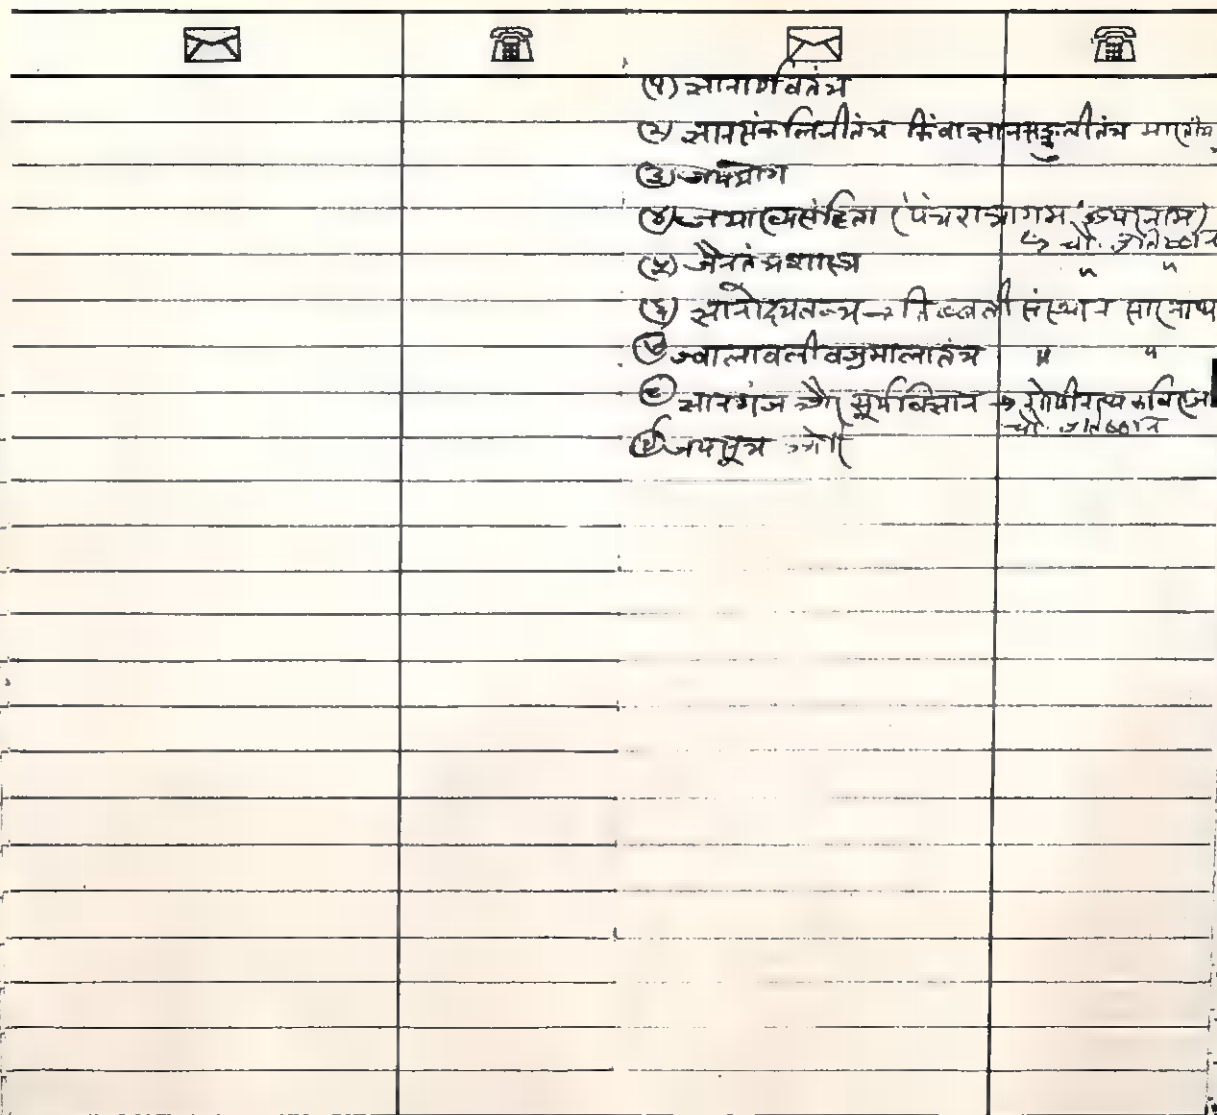 (१) ज्ञानार्णवतंत्र
(२) ज्ञानसंकलिनीतंत्र किंवा ज्ञानसङ्कुलीतंत्र भारतीय
(३) जपयोग
(४) जयाख्यसंहिता (पंचरात्रागम
↳ चौ. प्रतिष्ठान
(५) जैनतंत्रशास्त्र " "
(६) ज्ञानोदयतन्त्र → तिब्बती संस्थान सारनाथ
(७) ज्वालावलीवज्रमालातंत्र " "
(८) ज्ञानगंज और सूर्यविज्ञान → गोपीनाथ कविराज
चौ. प्रतिष्ठान
(९) जपसूत्र